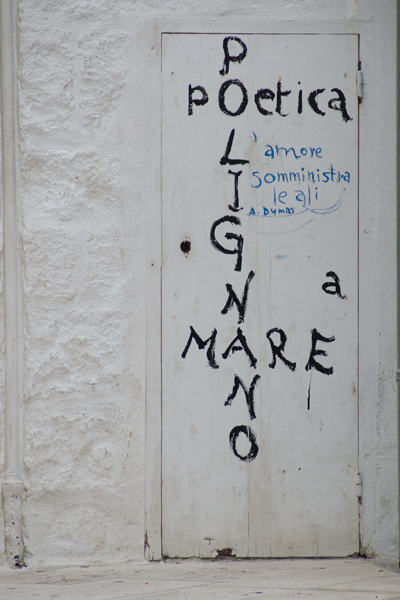 POLIGNANO
POetica
' amore
somministra
le ali
A. Dymas
a
MARE